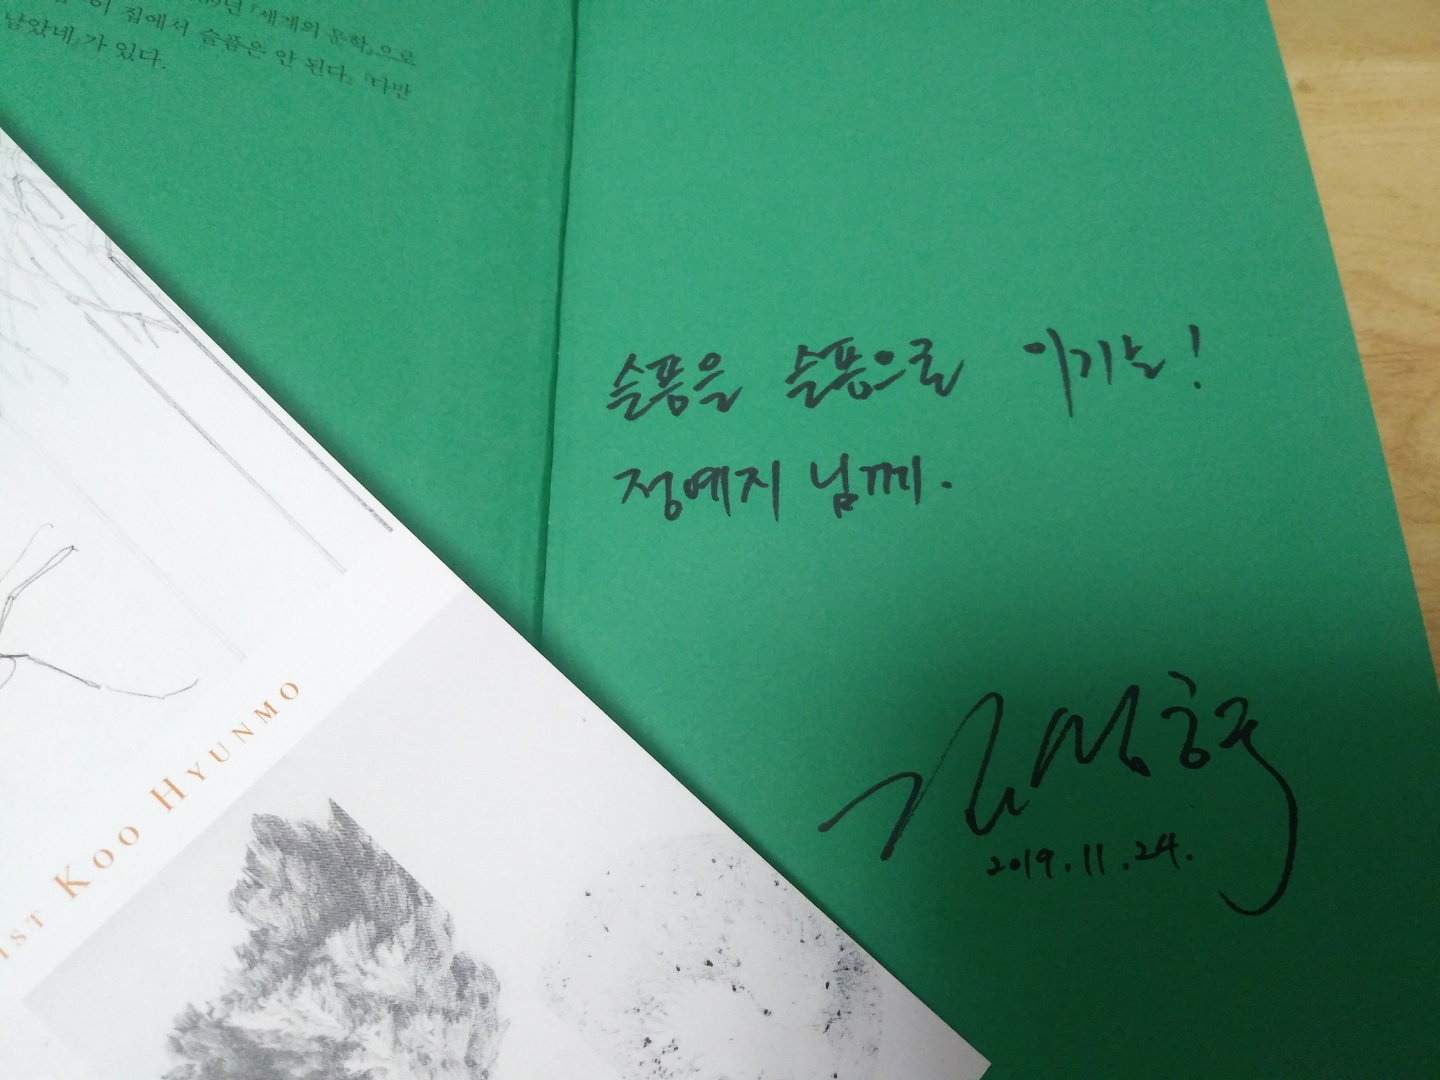 년 『세계의 문학』으로
이 집에서 슬픔은 안 된다』 『다만
남았네』가 있다.
슬픔을 슬픔으로 이기는!
정예지 님께.
2019.11.24.
IST KOO HYUNMO